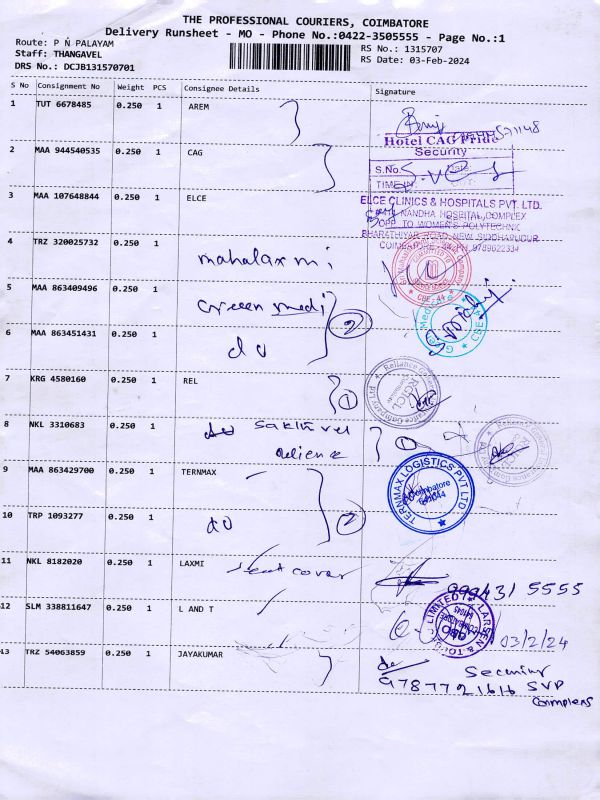 THE PROFESSIONAL COURIERS, COIMBATORE
Delivery Runsheet - MO - Phone No.:0422-3505555 - Page No.:1
Route: P N PALAYAM
Staff: THANGAVEL
DRS No.: DCJB131570701
RS No.: 1315707
RS Date: 03-Feb-2024
S No Consignment No Weight PCS Consignee Details Signature
1 TUT 6678485 0.250 1 AREM
Hotel CAG Pride
Security
2 MAA 944540535 0.250 1 CAG
S.No.
Date
TIME IN
3 MAA 107648844 0.250 1 ELCE
ELCE CLINICS & HOSPITALS PVT. LTD.
NANDHA HOSPITAL COMPLEX
OPP. TO WOMEN'S POLYTECHNIC
BHARATHIYAR ROAD, NEW SIDDHAPUDUR
4 TRZ 320025732 0.250 1
mahalaxmi
CBE-44
5 MAA 863409496 0.250 1
Green medi
2
6 MAA 863451431 0.250 1
do
7 KRG 4580160 0.250 1 REL
1
8 NKL 3310683 0.250 1
do Sakthivel
1
9 MAA 863429700 0.250 1 TERNMAX
TERNMAX LOGISTICS PVT LTD
Coimbatore
10 TRP 1093277 0.250 1
do 2
11 NKL 8182020 0.250 1 LAXMI
Seat cover
5555
12 SLM 338811647 0.250 1 L AND T
LARSEN & TOUBRO LIMITED
03/2/24
13 TRZ 54063859 0.250 1 JAYAKUMAR
9787721616 SVP